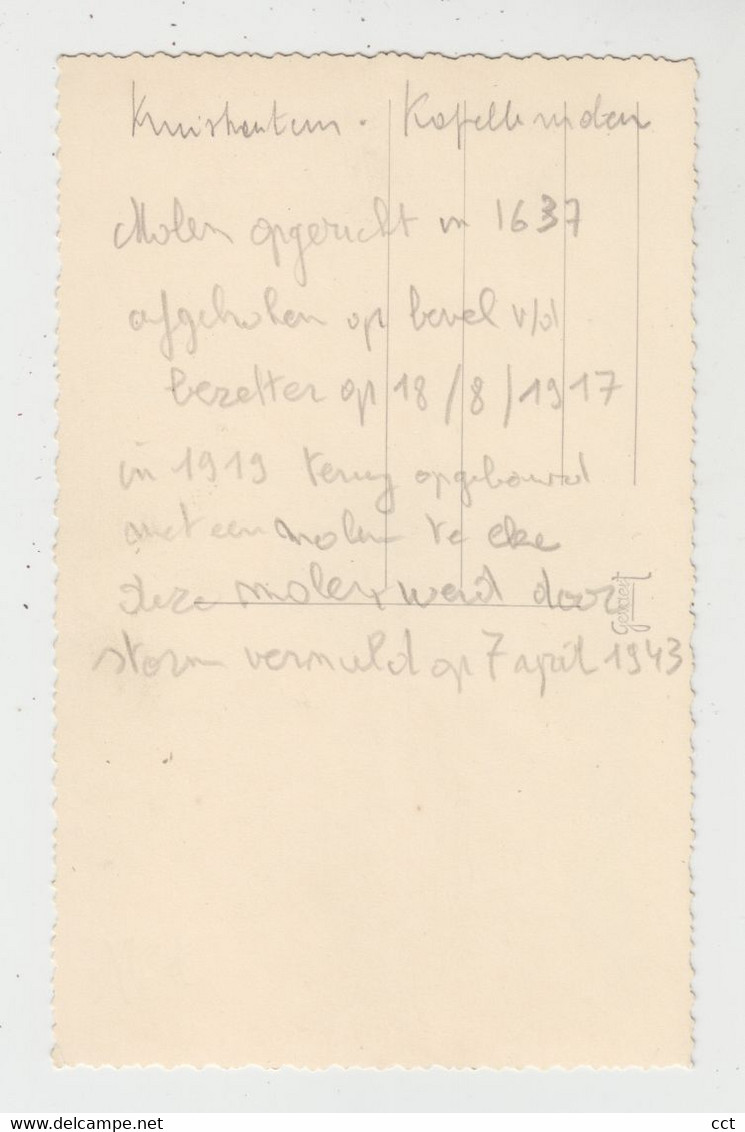 Kruishoutem. Kapellemolen
Molen opgericht in 1637
afgebroken op bevel v/d
bezetter op 18/8/1917
in 1919 terug opgebouwd
met een molen te eke
deze molen werd door
storm vernield op 7 april 1943
Gevaert
cct